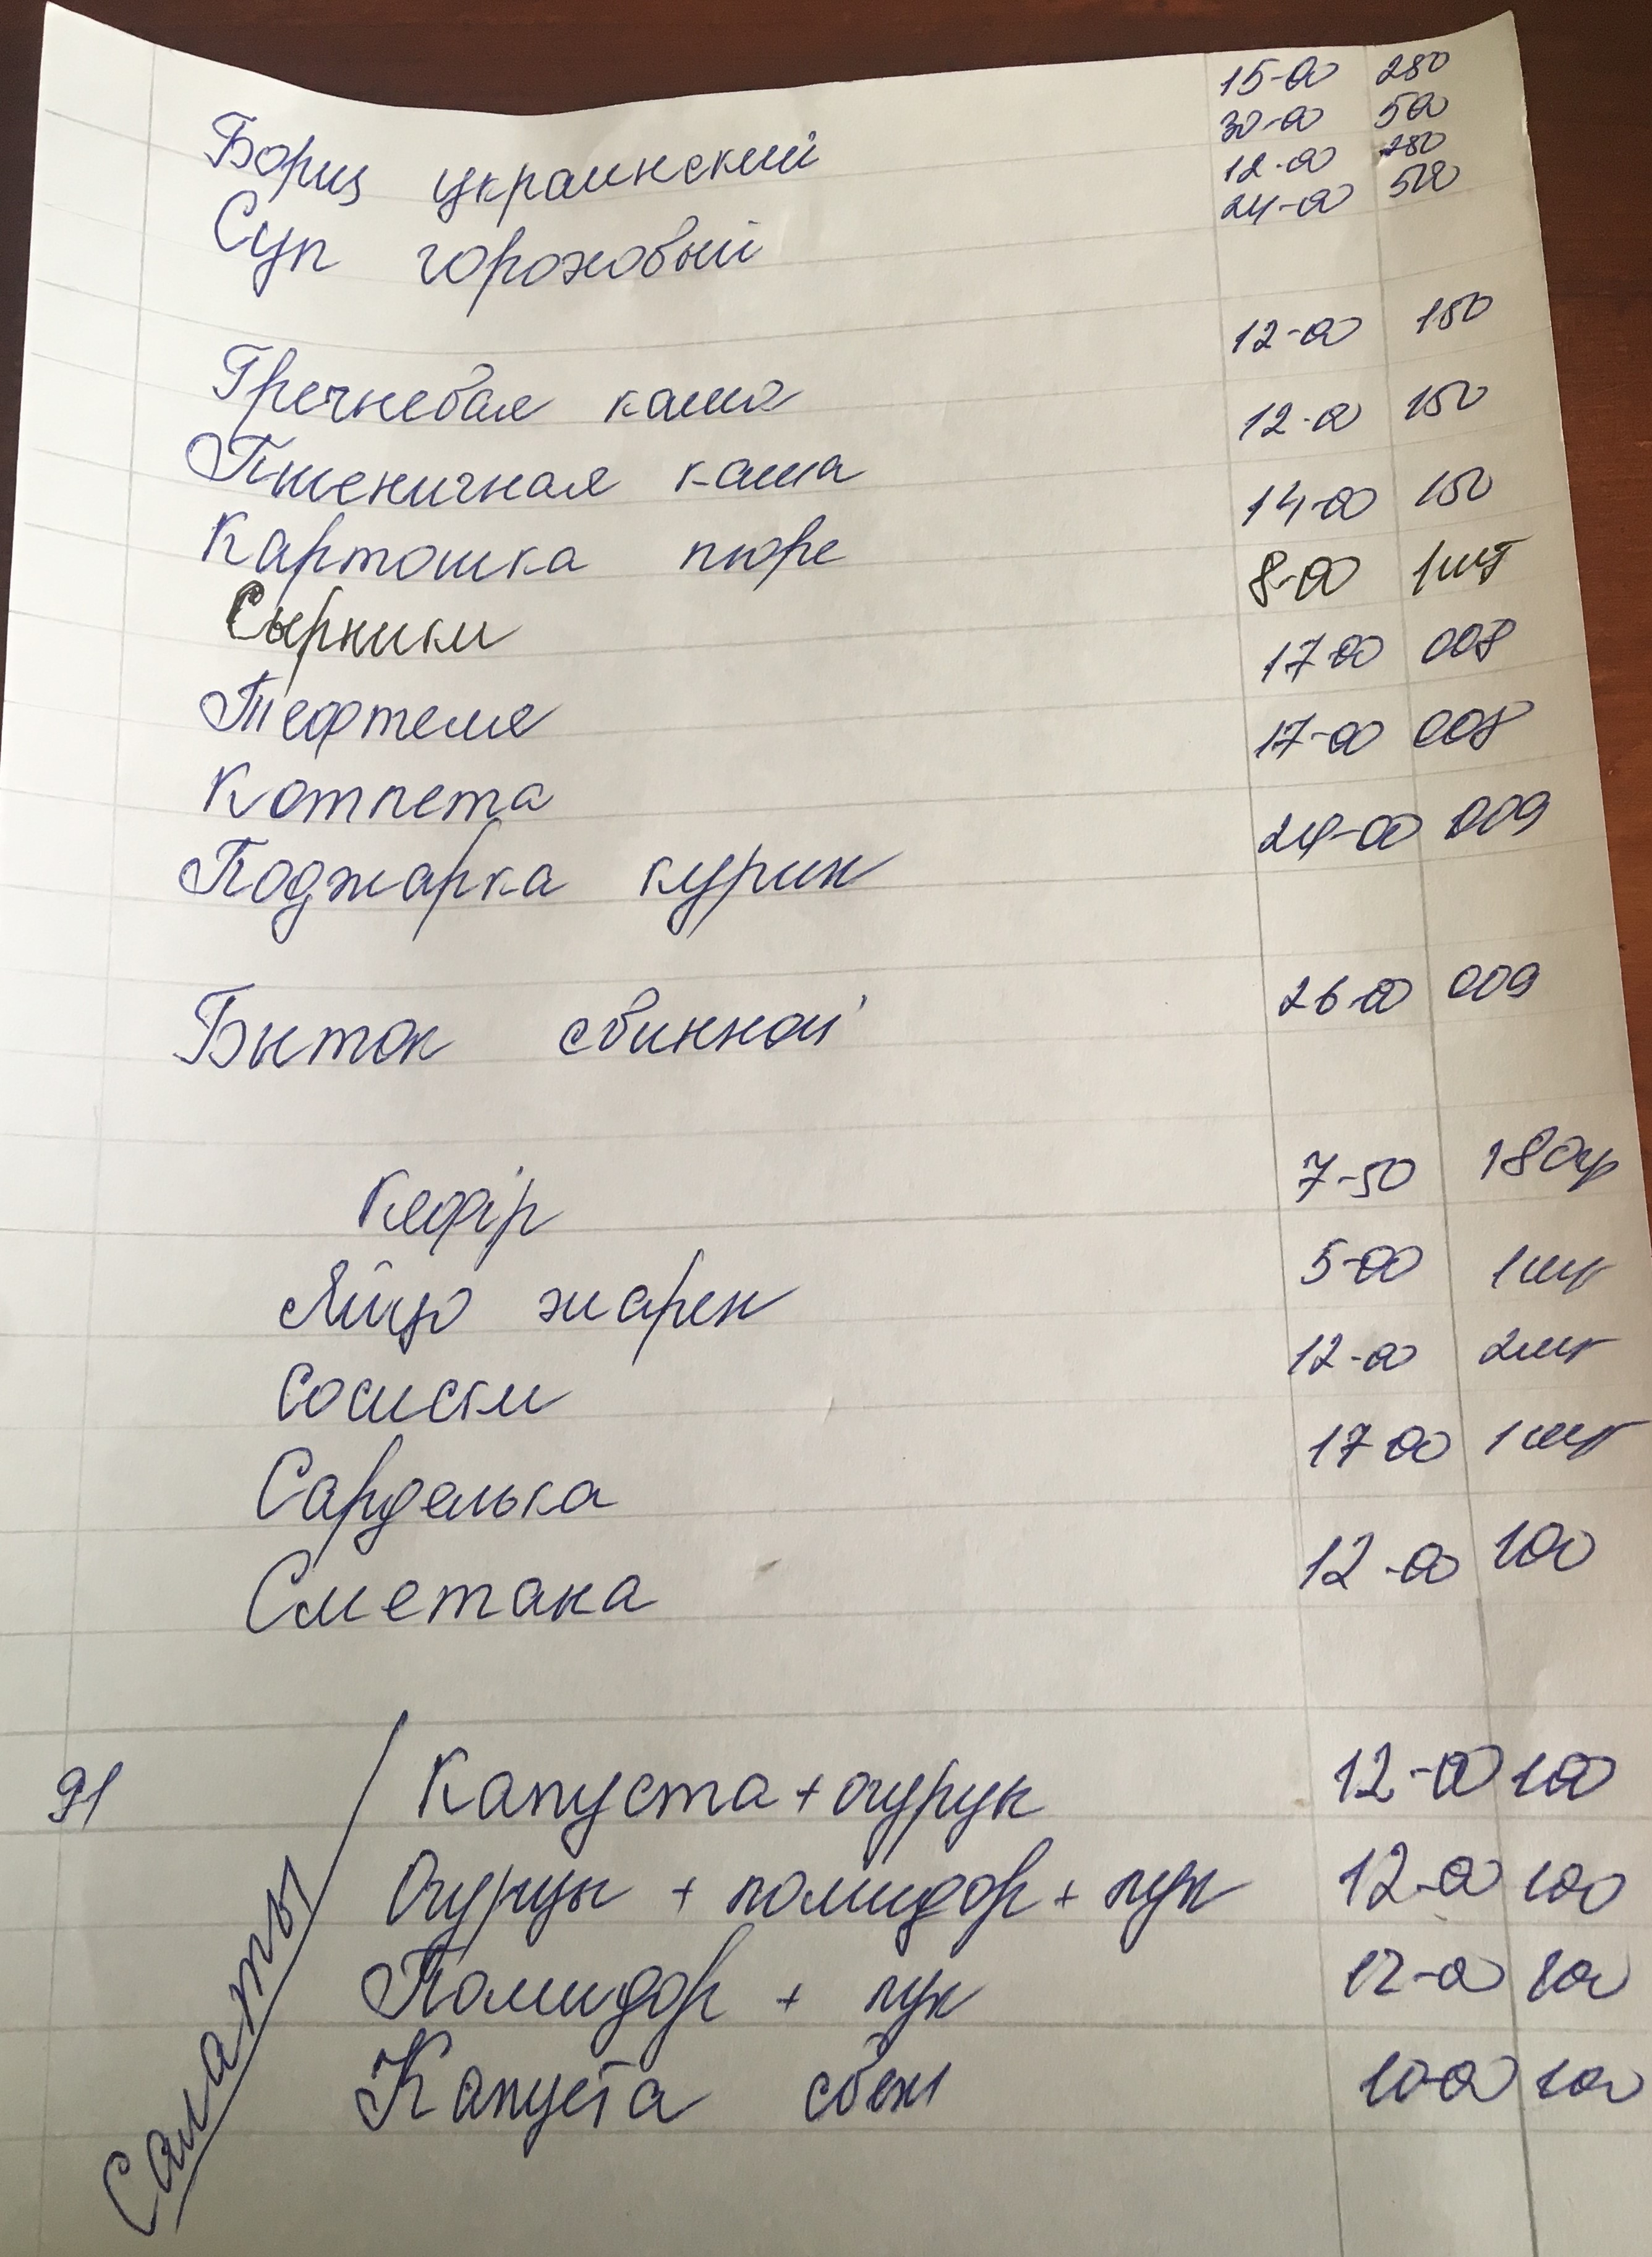 15-00 280
30-00 500
Борщ украинский 12-00 280
Суп гороховый 24-00 500
Гречневая каша 12-00 150
Пшеничная каша 12-00 150
Картошка пюре 14-00 150
Сырники 8-00 1шт
Тефтеля 17-00 008
Котлета 17-00 008
Поджарка курин 24-00 009
Быток свинной 26-00 009
Кефір 7-50 180гр
Яйцо жарен 5-00 1шт
Сосиски 12-00 2шт
Сарделька 17-00 1шт
Сметана 12-00 100
91 Капуста + огурук 12-00 100
Огурцы + помидор + лук 12-00 100
Помидор + лук 12-00 100
Капуста свеж 10-00 100
Салаты